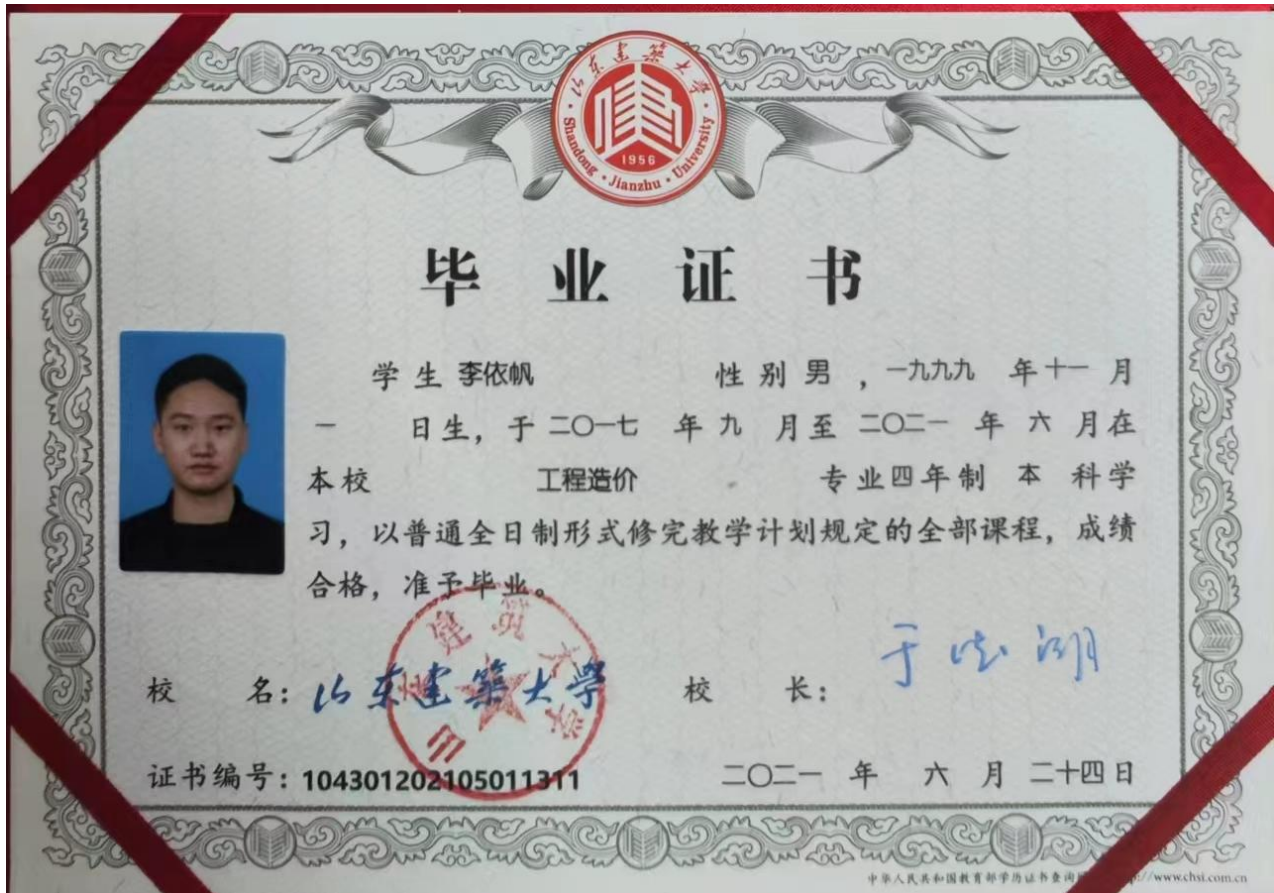 山东建筑大学
1956
Shandong · Jianzhu · University
毕业证书
学生 李依帆 性别 男 ，一九九九 年 十一 月
一 日生，于 二〇一七 年 九 月至 二〇二一 年 六 月在
本校 工程造价 专业 四 年制 本 科学
习，以普通全日制形式修完教学计划规定的全部课程，成绩
合格，准予毕业。
校 名：山东建筑大学 校 长：
山东建筑大学
证书编号：104301202105011311 二〇二一 年 六 月 二十四 日
中华人民共和国教育部学历证书查询 //www.chsi.com.cn